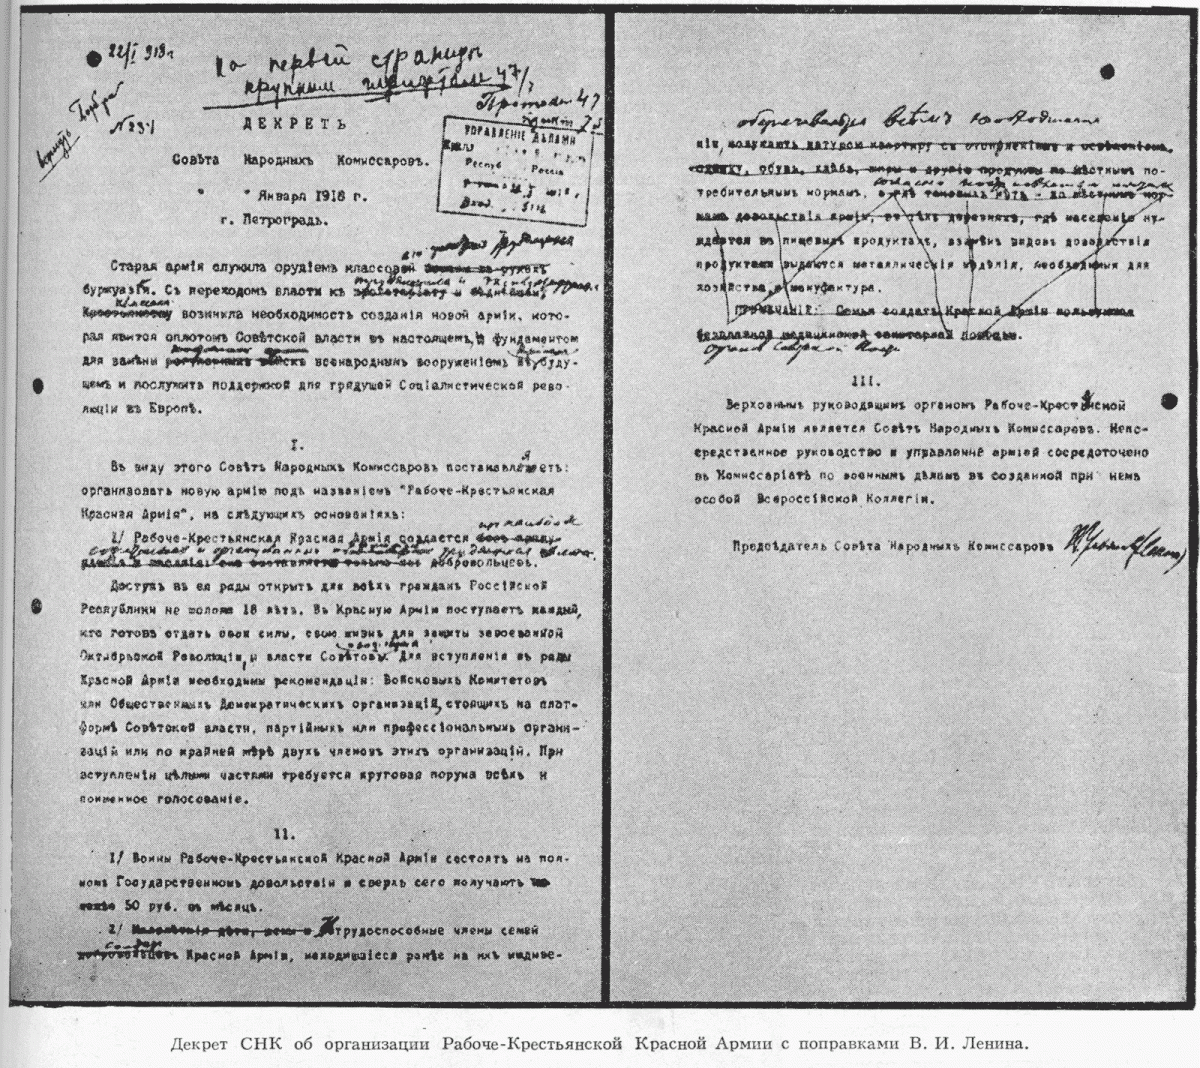 22/I 918 г
На первой странице
крупным шрифтом 47/7
Протокол 47
пункт 7
№ 234
ДЕКРЕТЪ
УПРАВЛЕНІЕ ДѢЛАМИ
Респуб Россіи
Совѣта Народныхъ Комиссаровъ.
" " Января 1918 г.
г. Петроградъ.
Старая армія служила орудіемъ классовой
буржуазіи. Съ переходомъ власти къ
возникла необходимость созданія новой арміи, кото-
рая явится оплотомъ Совѣтской власти въ настоящемъ, фундаментом
для замѣны всенароднымъ вооруженіемъ въ буду-
щемъ и послужитъ поддержкой для грядущей Соціалистической рево-
люціи въ Европѣ.
I.
Въ виду этого Совѣтъ Народныхъ Комиссаровъ постановляетъ:
организовать новую армію подъ названіемъ "Рабоче-Крестьянская
Красная Армія", на слѣдующихъ основаніяхъ:
1/ Рабоче-Крестьянская Красная Армія создается
добровольцевъ.
Доступъ въ ея ряды открытъ для всѣхъ гражданъ Россійской
Республики не моложе 18 лѣтъ. Въ Красную Армію поступаетъ каждый,
кто готовъ отдать свои силы, свою жизнь для защиты завоеванной
Октябрьской Революціи, и власти Совѣтовъ. Для вступленія въ ряды
Красной Арміи необходимы рекомендаціи: Войсковыхъ Комитетовъ
или Общественныхъ Демократическихъ организацій, стоящихъ на плат-
формѣ Совѣтской власти, партійныхъ или профессіональныхъ органи-
зацій или по крайней мѣрѣ двухъ членовъ этихъ организацій. При
вступленіи цѣлыми частями требуется круговая порука всѣхъ и
поименное голосованіе.
11.
1/ Воины Рабоче-Крестьянской Красной Арміи состоятъ на пол-
номъ Государственномъ довольствіи и сверхъ сего получаютъ
50 руб. въ мѣсяцъ.
2/ Нетрудоспособные члены семей
солдат
Красной Арміи, находившіеся ранѣе на ихъ иждиве-
обеспечиваются всѣмъ необходимым
ніи, получаютъ натурою квартиру съ отопленіемъ и освѣщеніемъ,
одежду, обувь, хлѣбъ, жиры и другіе продукты по мѣстнымъ по-
требительнымъ нормамъ, а гдѣ таковыхъ нѣтъ - по мѣстнымъ нор-
мамъ довольствія арміи, въ тѣхъ деревняхъ, гдѣ населеніе ну-
ждается въ пищевыхъ продуктахъ, взамѣнъ видовъ довольствія
продуктами выдаются металлическія издѣлія, необходимыя для
хозяйства, и мануфактура.
ПРИМѢЧАНІЕ: Семьи солдатъ Красной Арміи пользуются
безплатной медицинской санитарной помощью.
III.
Верховнымъ руководящимъ органомъ Рабоче-Крестьянской
Красной Арміи является Совѣтъ Народныхъ Комиссаровъ. Непо-
средственное руководство и управленіе арміей сосредоточено
въ Комиссаріатѣ по военнымъ дѣламъ въ созданной при немъ
особой Всероссійской Коллегіи.
Предсѣдатель Совѣта Народныхъ Комиссаровъ В. Ульянов (Ленин)
Декрет СНК об организации Рабоче-Крестьянской Красной Армии с поправками В. И. Ленина.